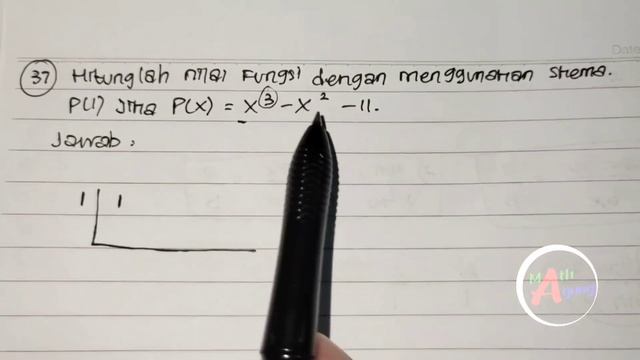 37 Hitunglah nilai Fungsi dengan menggunakan skema.
P(1) Jika P(x) = x³ - x² - 11.
Jawab :
1 1
Math
Date